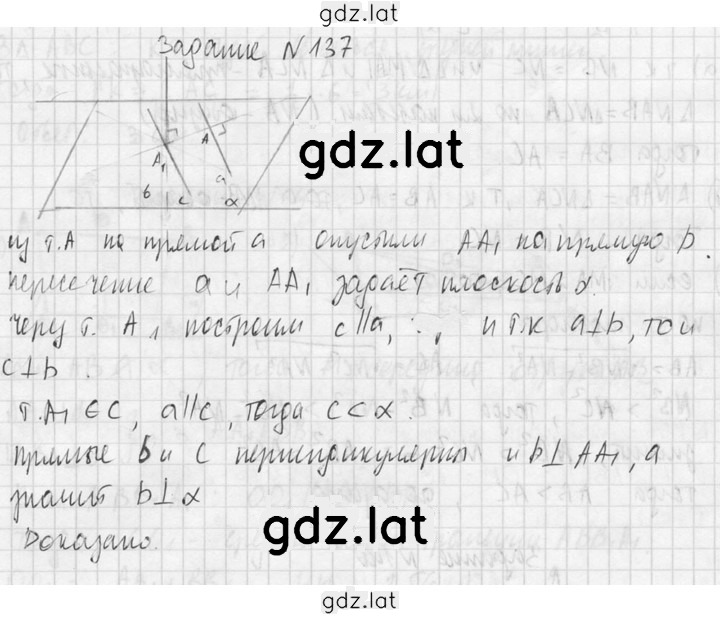 gdz.lat
Задание N 137
gdz.lat
A₁ A
в c a α
из т.А на прямой a опустили AA₁ на прямую b.
пересечение a и AA₁ задаёт плоскость α.
через т. A₁ построим c||a, ∴, и т.к a⊥b, то и
c⊥b.
т.A₁ ∈ C, a||c, тогда c ⊂ α.
прямые b и c перпендикулярны и b⊥AA₁, а
значит b⊥α
Доказано.
gdz.lat
gdz.lat